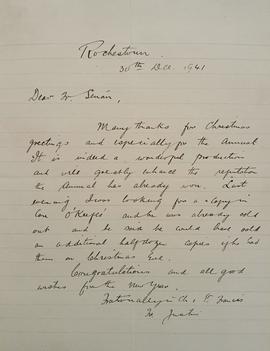 Rochestown.
30th Dec. 1941
Dear Fr. Senan,
Many thanks for Christmas
greetings and especially for the Annual
It is indeed a wonderful production
and will greatly enhance the reputation
the Annual has already won. Last
evening I was looking for a copy in
Con O'Keefes' and he was already sold
out and he said he could have sold
an additional half dozen copies if he had
them on Christmas Eve.
Congratulations and all good
wishes for the New Year.
Fraternally in Ch. & St. Francis
Fr. Justin